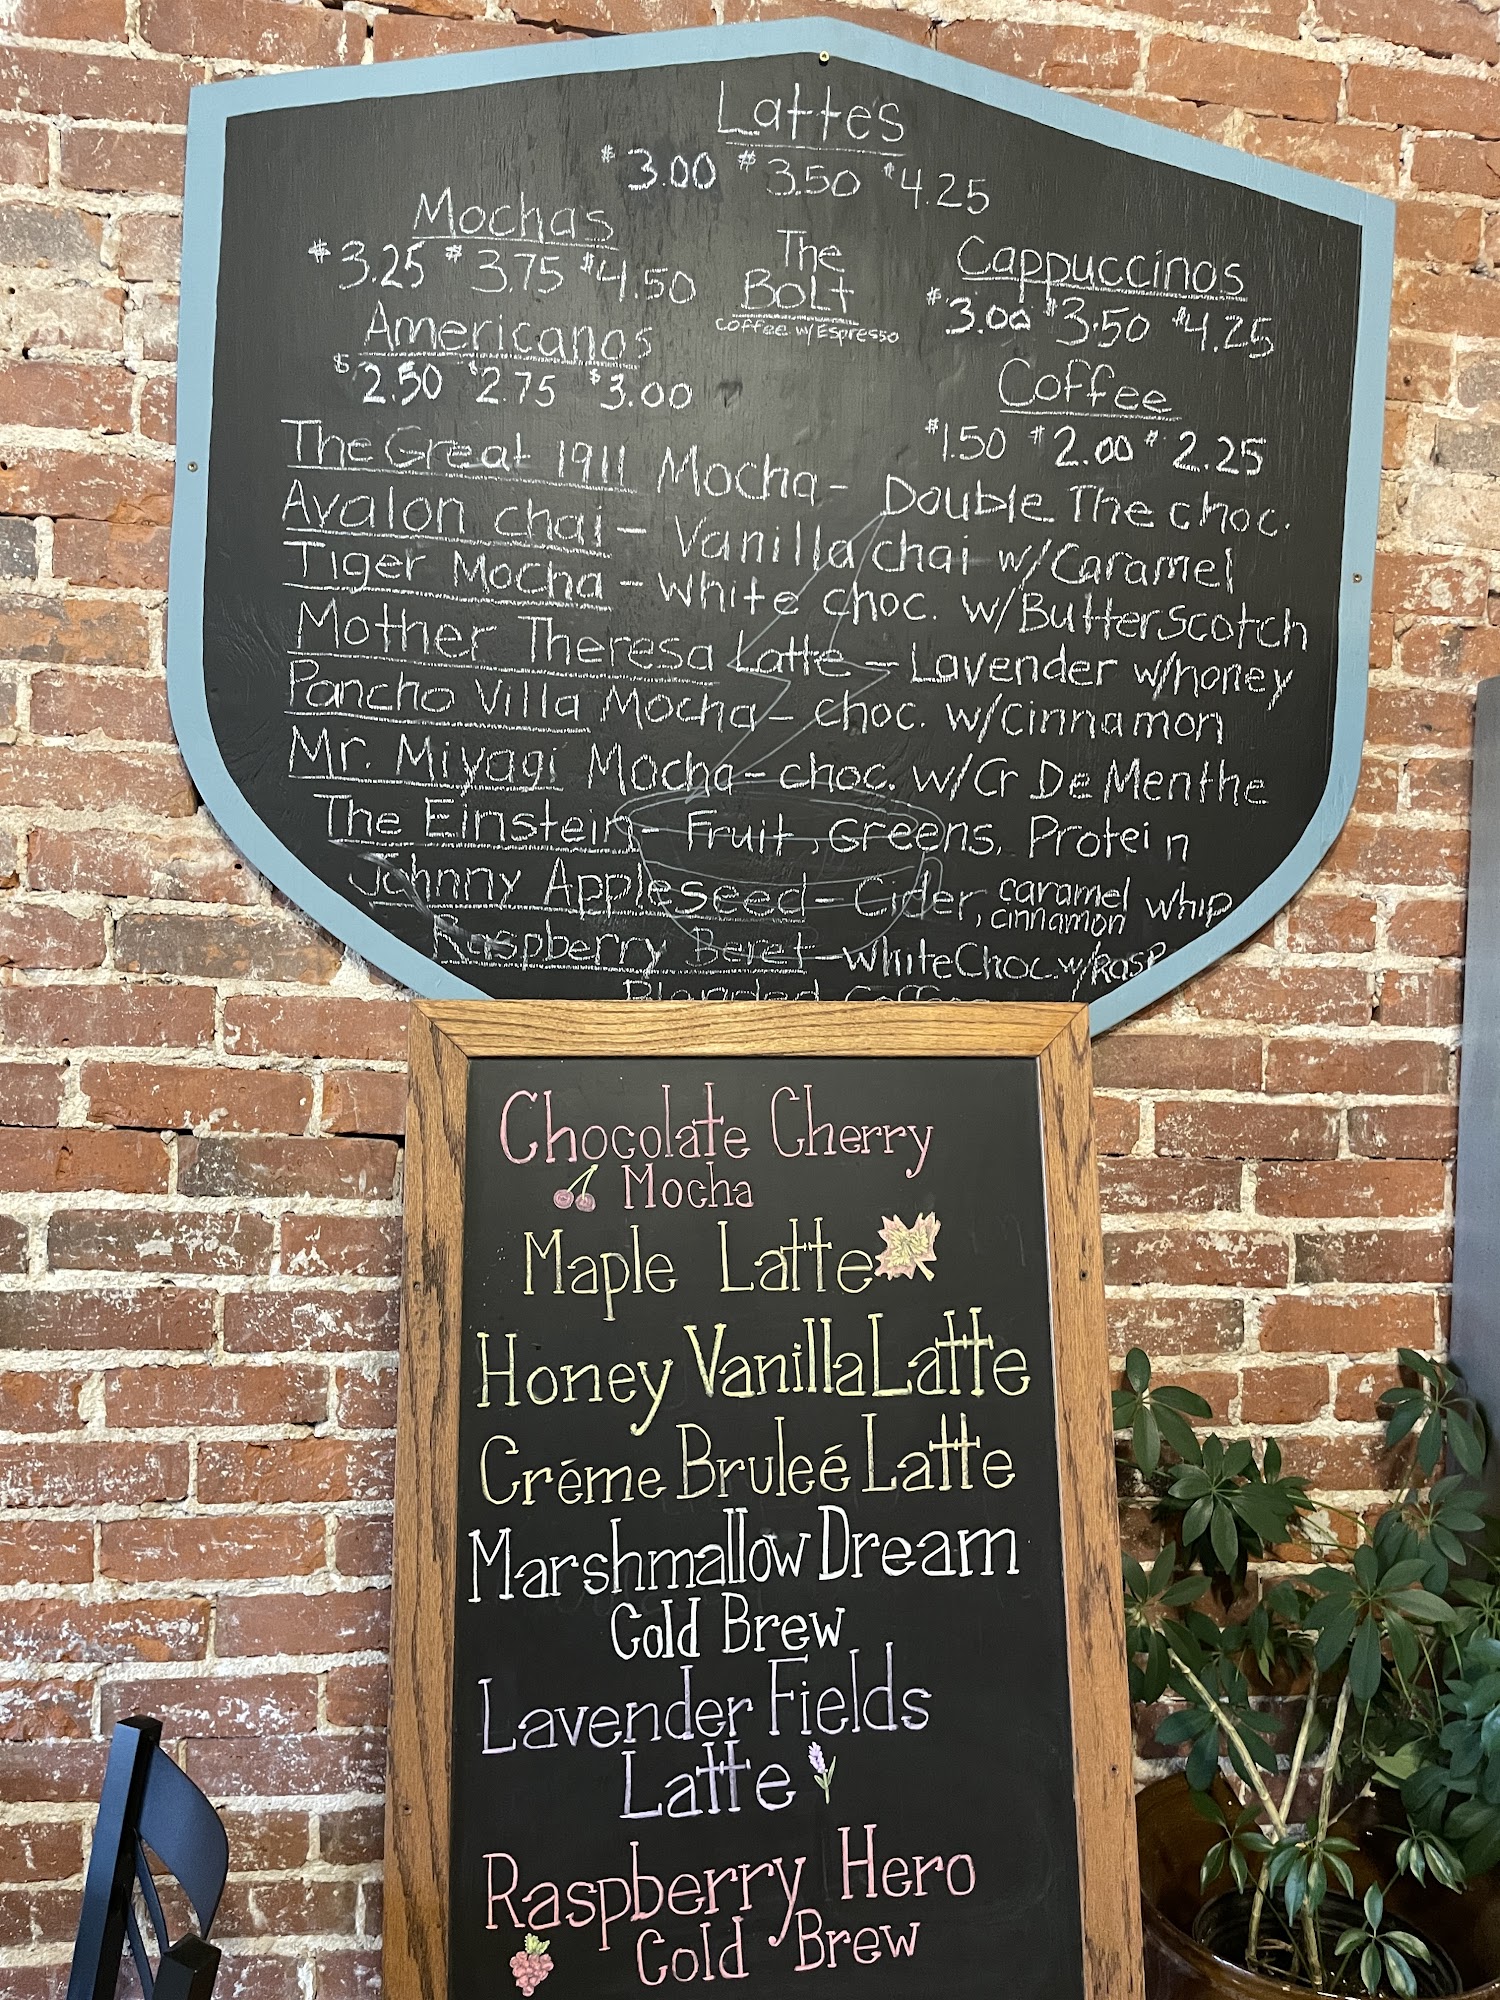 Latte's
$3.00 $3.50 $4.25
Mochas
$3.25 $3.75 $4.50
The
Bolt
coffee w/Espresso
Cappuccinos
$3.00 $3.50 $4.25
Americanos
$2.50 $2.75 $3.00
Coffee
$1.50 $2.00 $2.25
The Great 1911 Mocha - Double The choc.
Avalon chai - Vanilla chai w/Caramel
Tiger Mocha - white choc. w/ButterScotch
Mother Theresa Latte - Lavender w/honey
Pancho Villa Mocha - choc. w/cinnamon
Mr. Miyagi Mocha - choc. w/Cr De Menthe
The Einstein - Fruit, Greens, Protein
Johnny Appleseed - Cider, caramel, cinnamon whip
Raspberry Beret - White Choc w/Rasp
Blended Coffee
Chocolate Cherry
Mocha
Maple Latte
Honey Vanilla Latte
Créme Bruleé Latte
Marshmallow Dream
Cold Brew
Lavender Fields
Latte
Raspberry Hero
Cold Brew